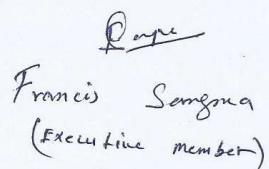 Francis Sangma
(Executive member)